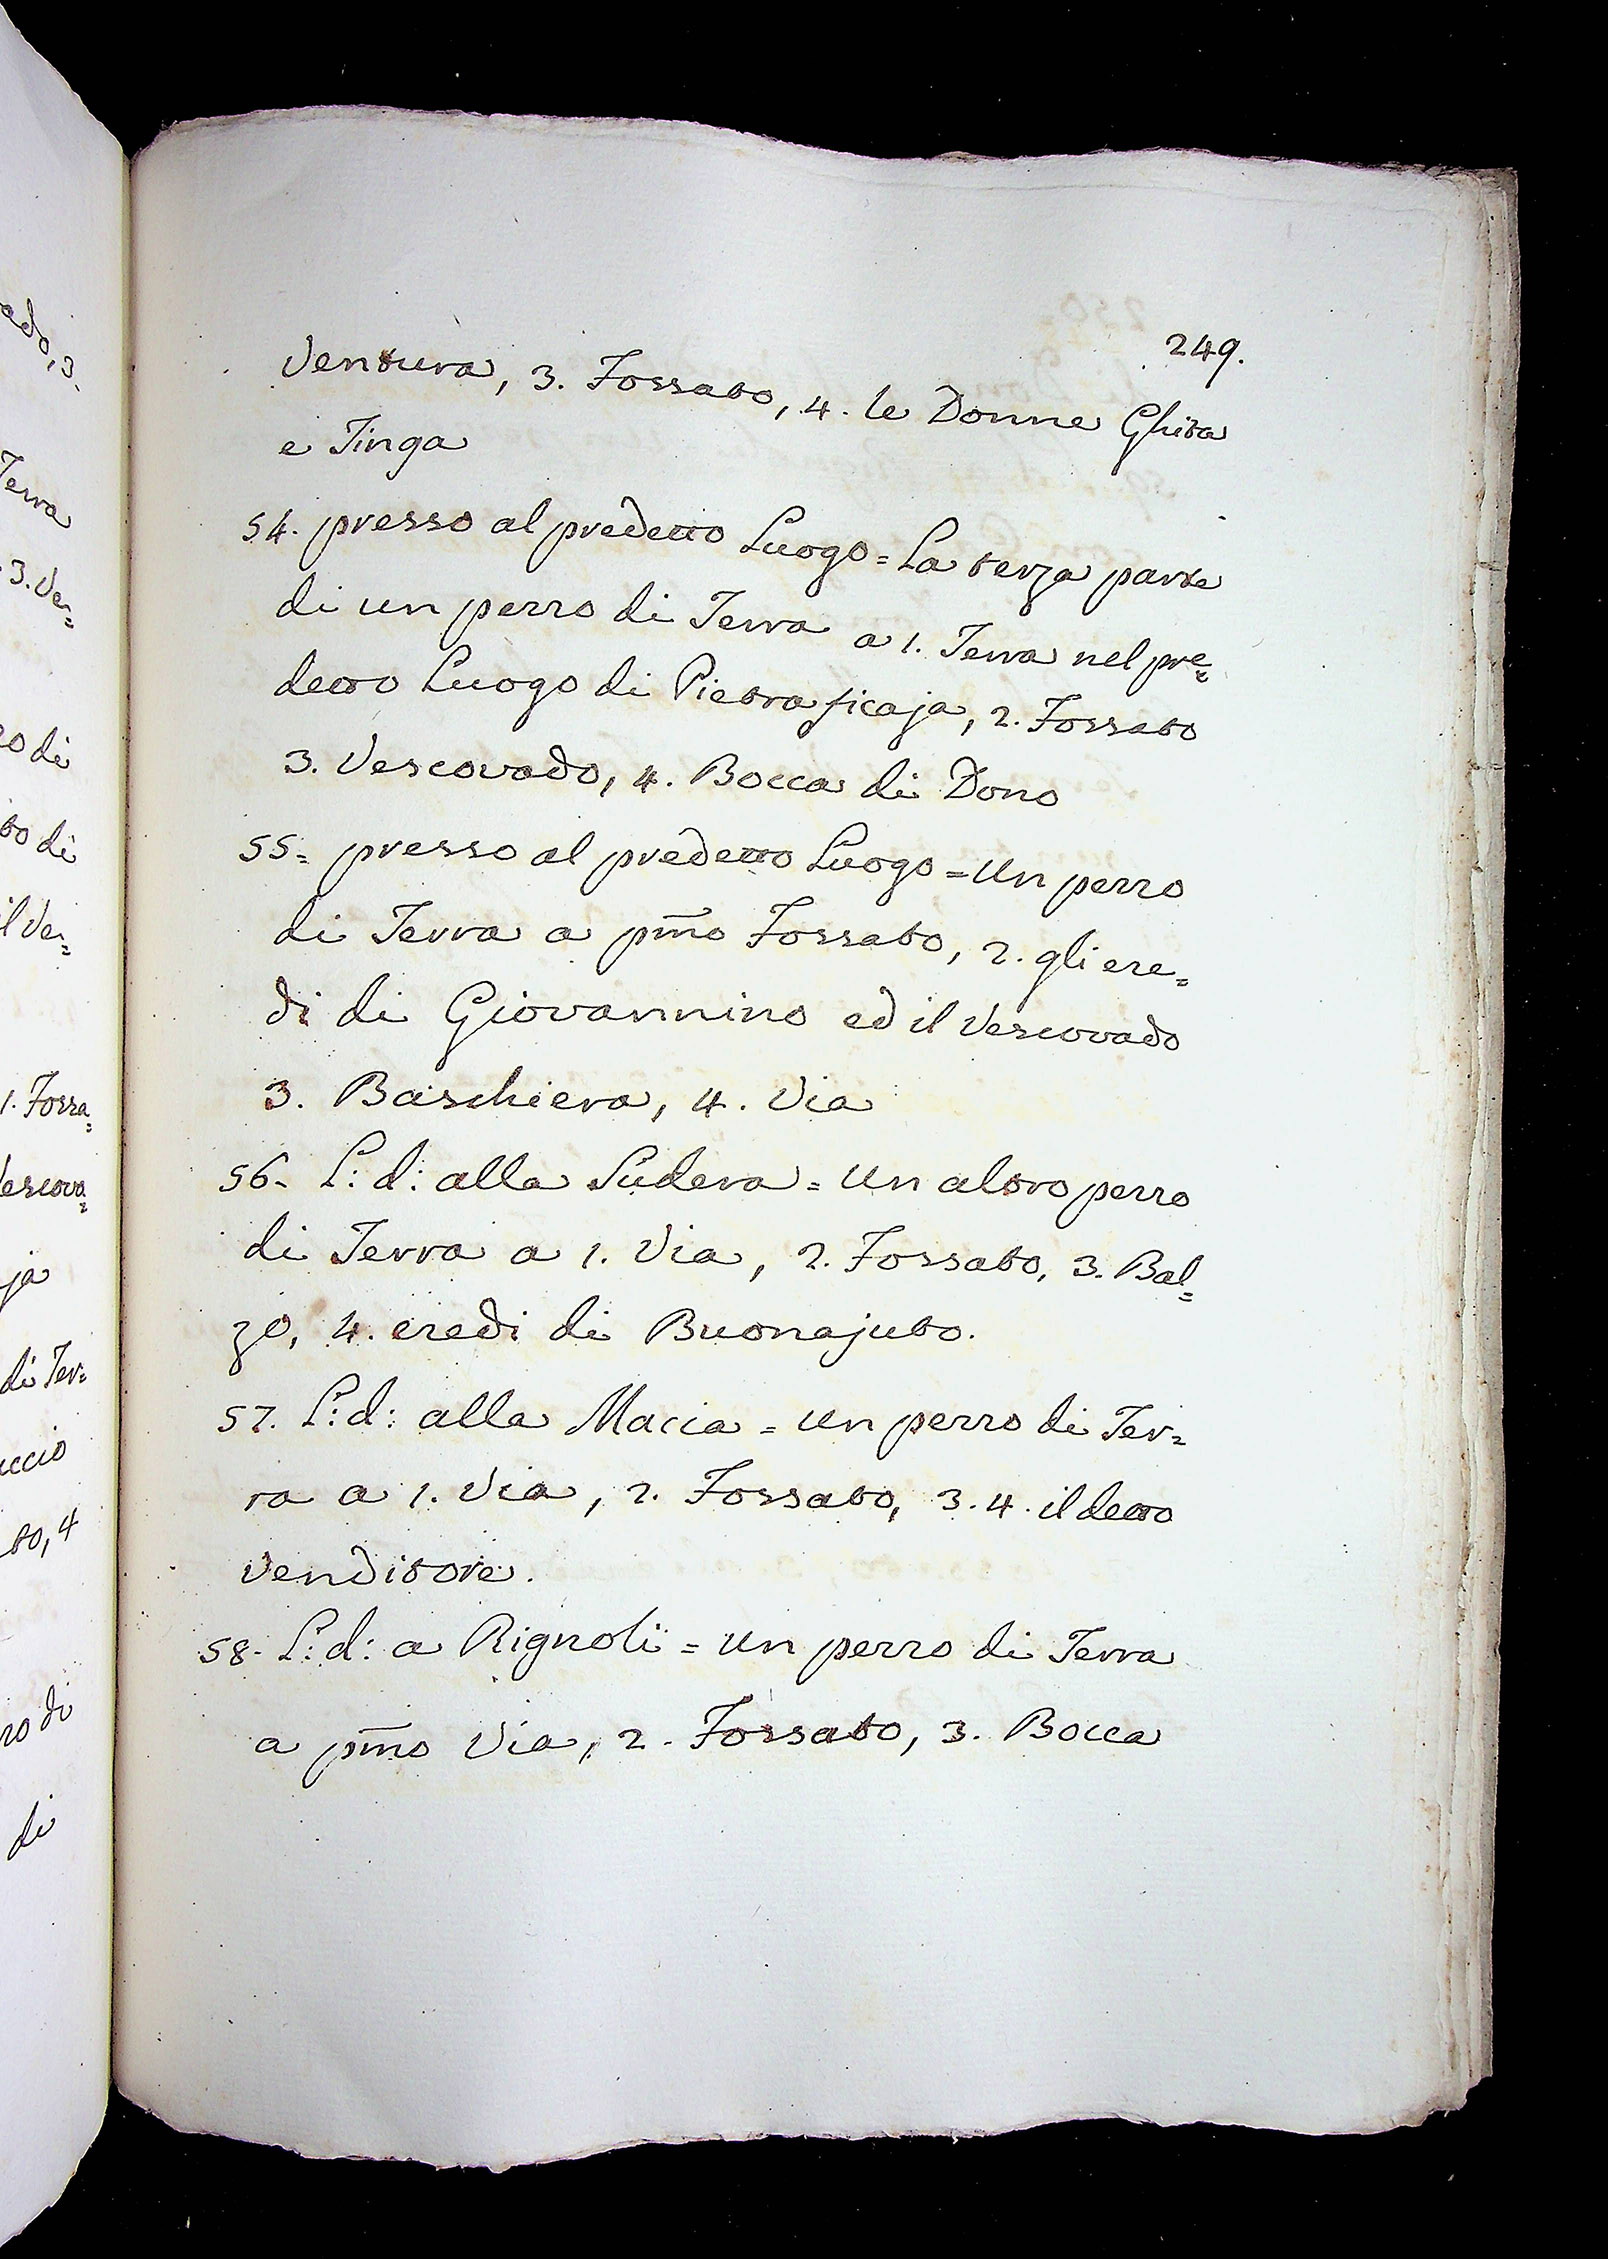 249.
Ventura, 3. Fossato, 4. le Donne Ghita
e Tinga
54. presso al predetto Luogo = La terza parte
di un pezzo di Terra a 1. Terra nel pre=
detto Luogo di Pietra ficaja, 2. Fossato
3. Vescovado, 4. Bocca di Dono
55= presso al predetto Luogo = Un pezzo
di Terra a pmo Fossato, 2. gli ere=
di di Giovannino ed il Vescovado
3. Baschiera, 4. Via
56- L: d: alla Sudera = Un altro pezzo
di Terra a 1. Via, 2. Fossato, 3. Bal=
zo, 4. eredi di Buonajuto.
57. L: d: alla Macia = Un pezzo di Ter=
ra a 1. Via, 2. Fossato, 3. 4. il detto
venditore.
58- L: d: a Rignoli = Un pezzo di Terra
a pmo Via, 2. Fossato, 3. Bocca